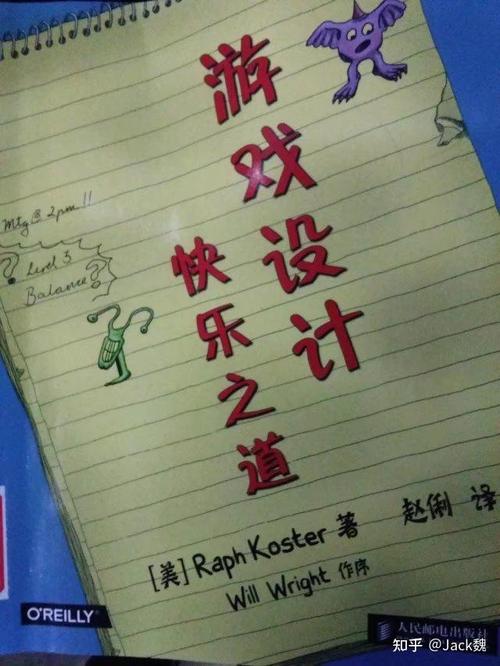 游戏设计
快乐之道
Mtg @ 2pm !!
? Level 3
Balance?
[美] Raph Koster 著 赵俐 译
Will Wright 作序
O'REILLY
人民邮电出版社
知乎 @Jack魏